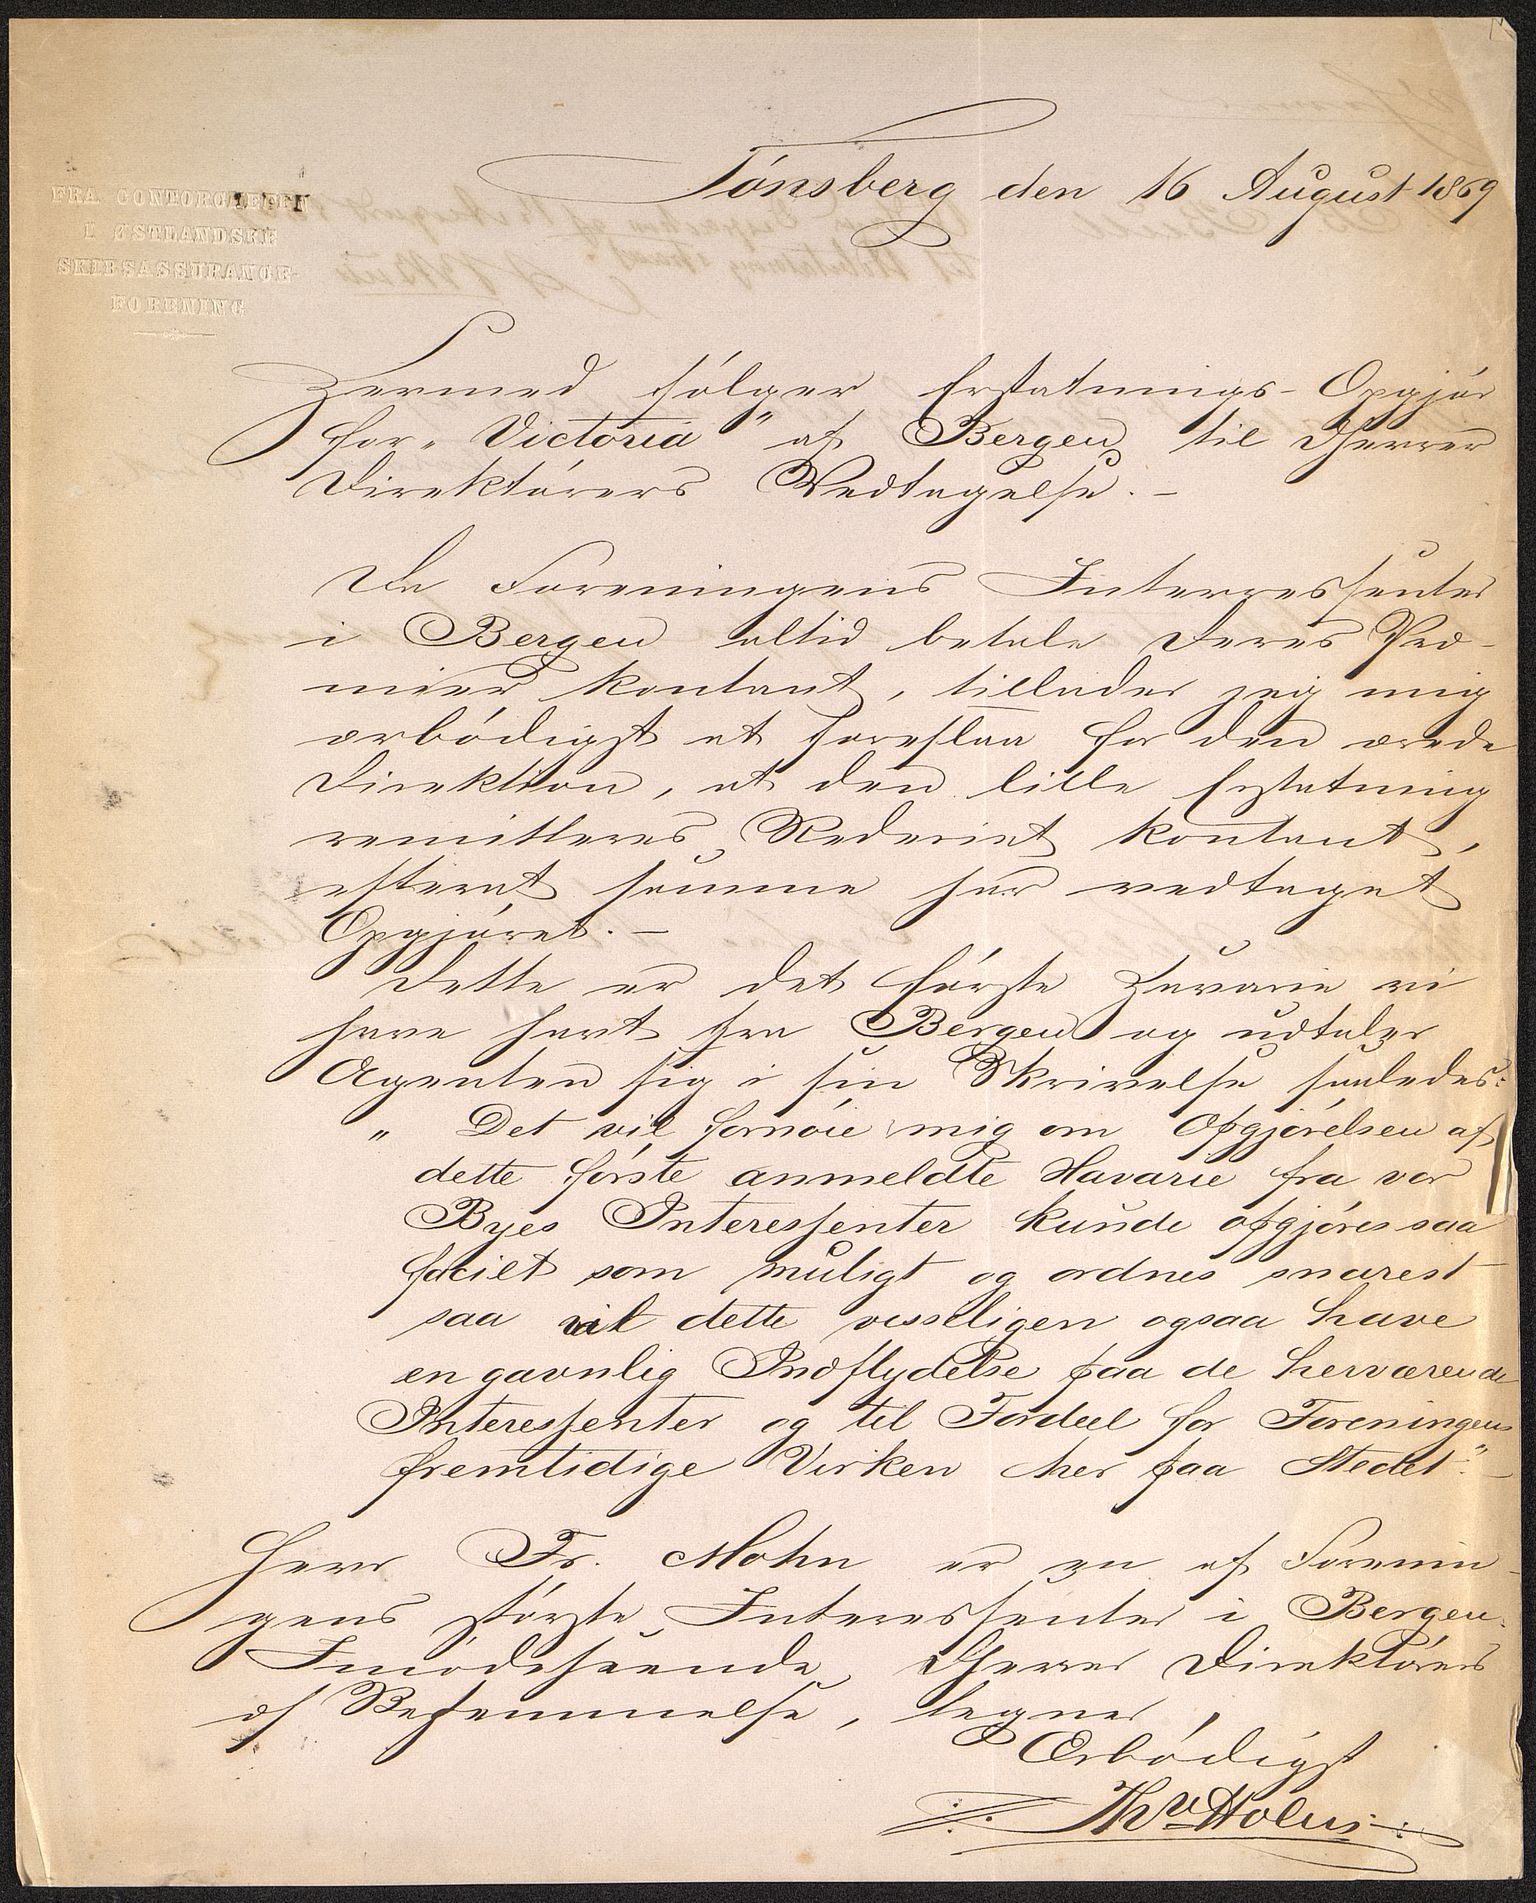 FRA CONTORCHEFEN
I ØSTLANDSKE
SKIBSASSURANCE-
FORENING
Tónsberg den 16 August 1869
Hermed fólger Erstatnings-Opgjór
for „Victoria" af Bergen til Dherrer
Direktórers Vedtagelse. –
Da Foreningens Interressenter
i Bergen altid betale deres Præ-
mier kontant, tillader jeg mig
ærbódigst at foreslaa for den ærede
Direktion, at den lille Erstatning
remitteres Rederiet kontant,
efterat samme har vedtaget
Opgjóret. –
Dette er det fórste Havarie vi
have havt fra Bergen og udtaler
Agenten sig i sin Skrivelse saaledes:
„ Det vil fornóie mig om Opgjórelsen af
dette fórste anmeldte Havarie fra vor
Byes Interessenter kunde opgjóres saa
facilt som muligt og ordnes snarest
saa vil dette visseligen ogsaa have
en gavnlig Indflydelse paa de herværende
Interessenter og til Fordeel for Foreningens
fremtidige Virken her paa Stedet". –
Herr Fr. Mohn er en af Forenin-
gens stórste Interessenter i Bergen.
Imódeseende Dherrer Direktórers
Bestemmelse, tegner,
Ærbódigst
Thv Holm